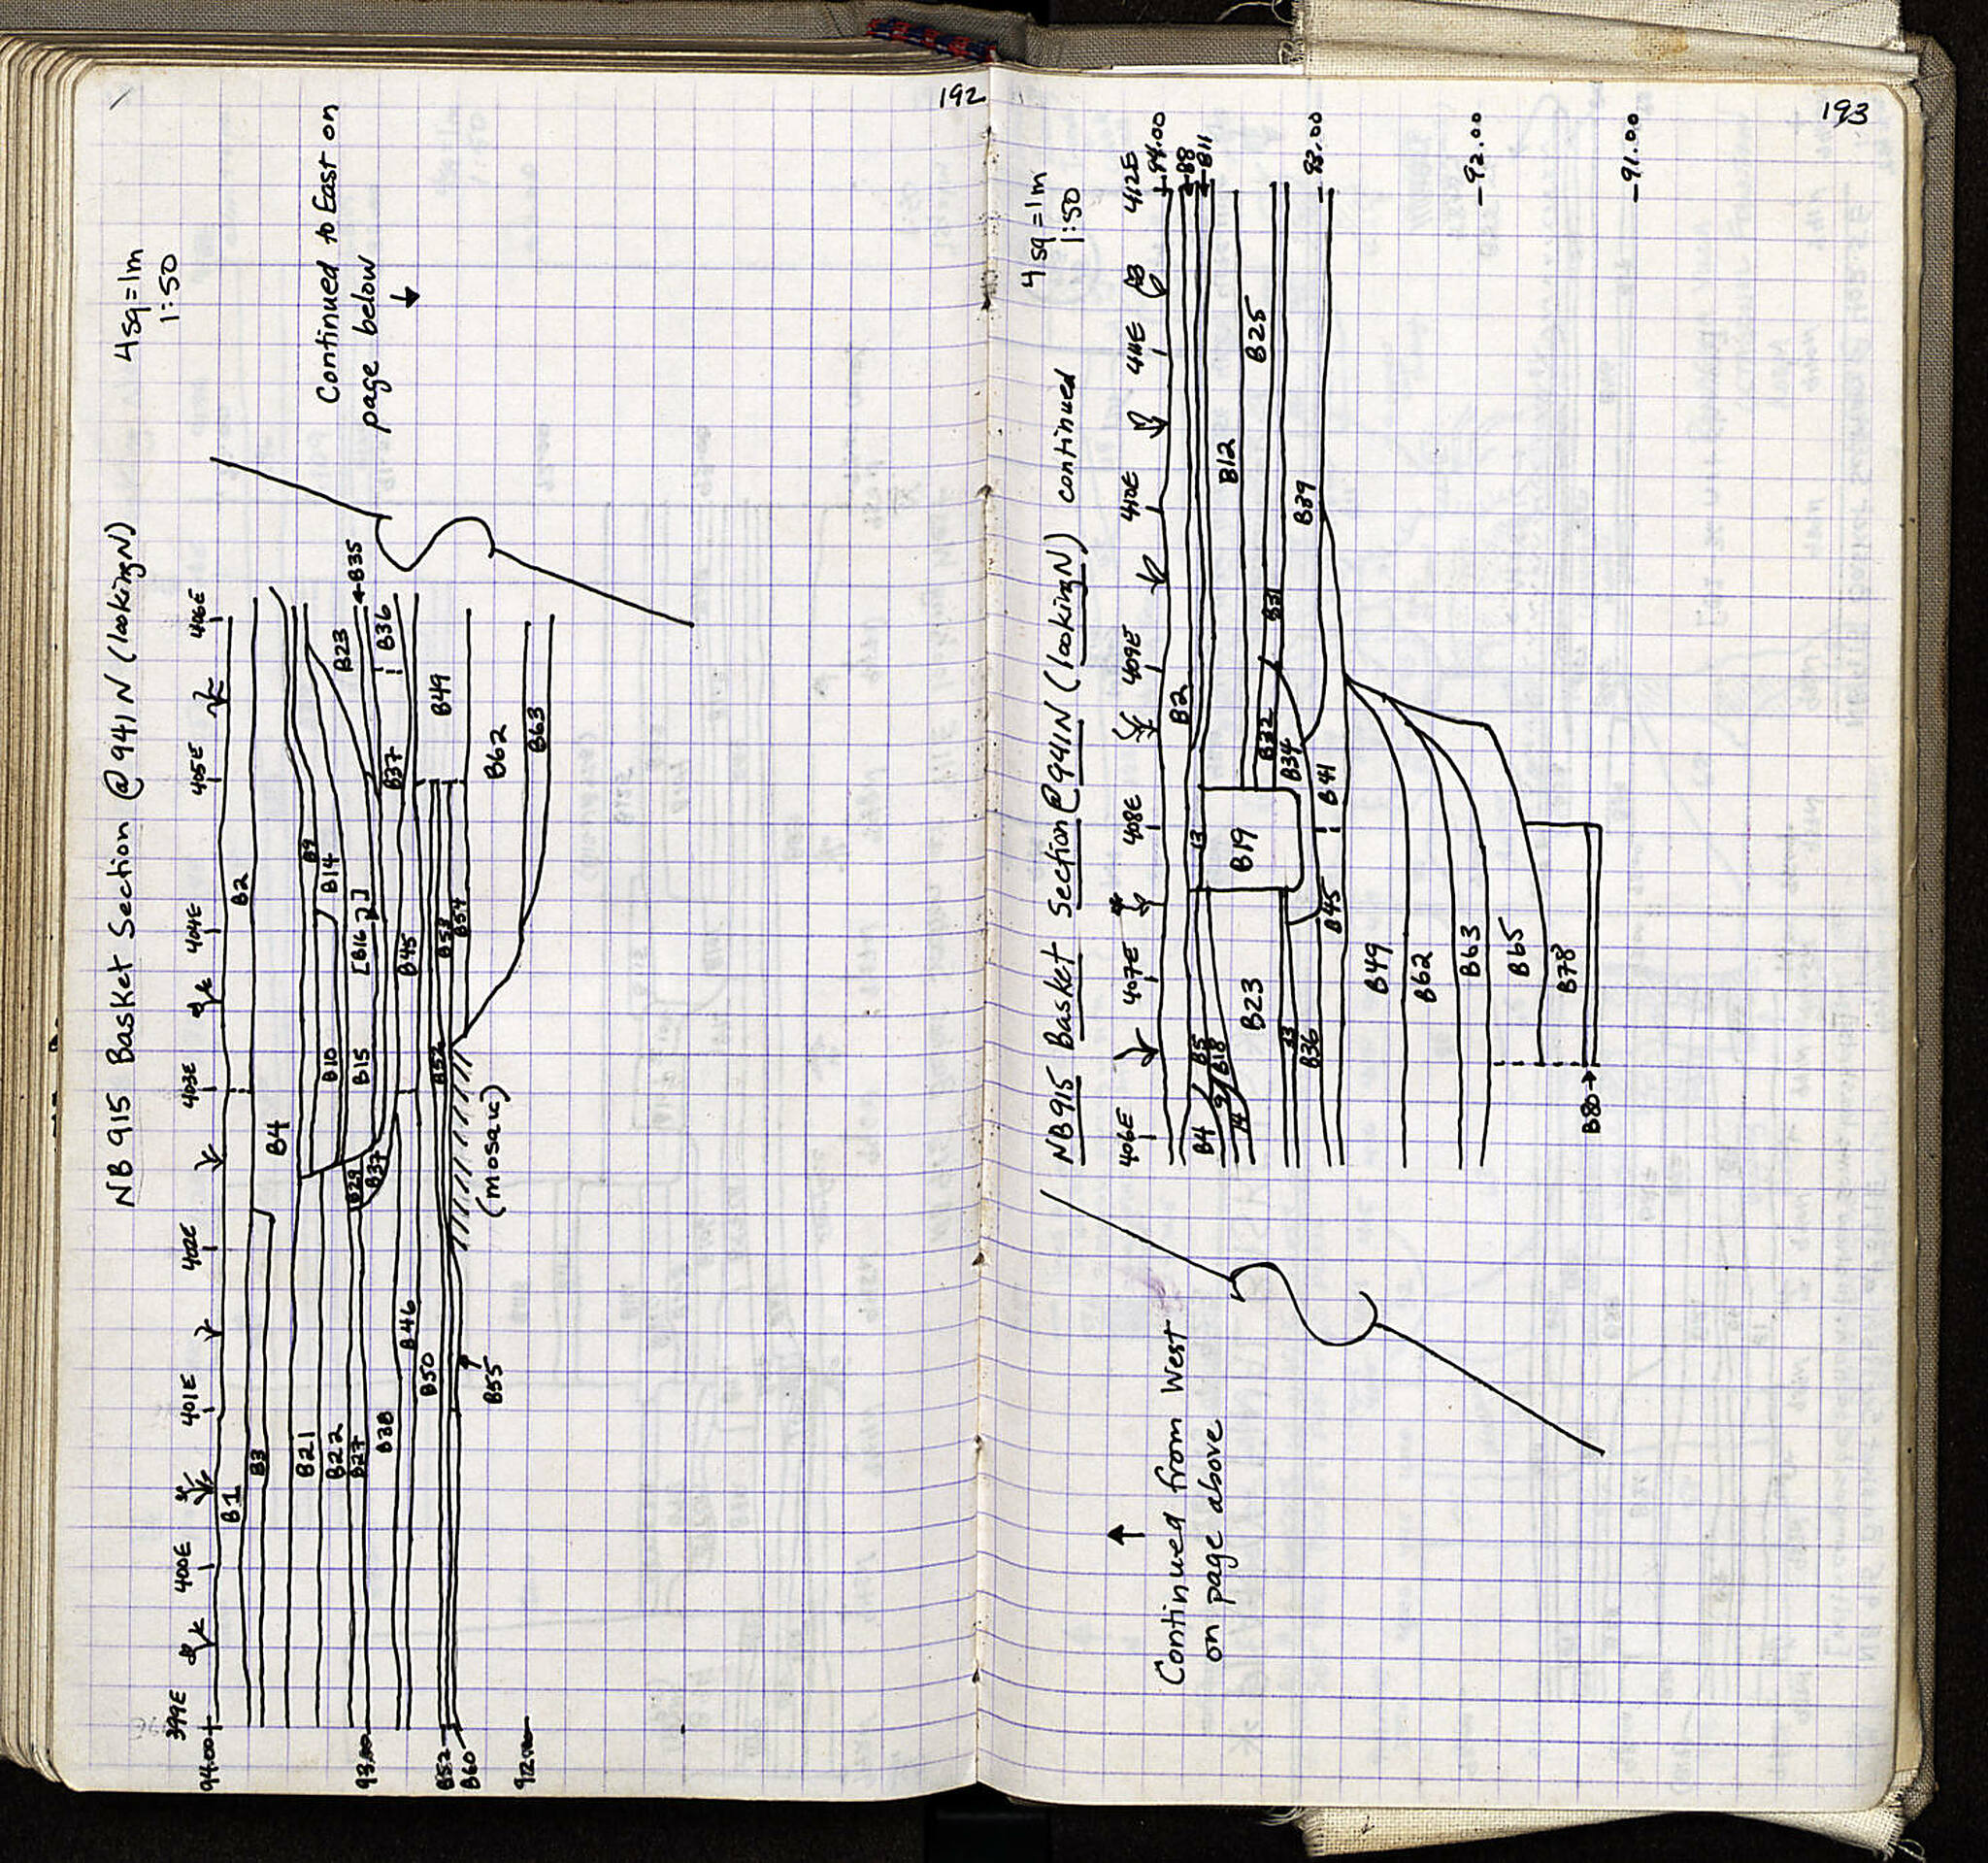 192
NB 915 Basket Section @ 941 N (looking N)
4 sq = 1m
1:50
Continued to East on
page below
399E
400E
401E
402E
403E
404E
405E
406E
94.00
93.00
B52
B60
92.00
B1
B2
B3
B4
B9
B14
B10
B15
[B16 ?]
B23
B35
B36
B37
B49
B21
B22
B27
B29
B37
B38
B45
B46
B50
B52
B53
B54
B55
B62
B63
(mosaic)
193
NB 915 Basket Section @ 941N (looking N) continued
4 sq = 1m
1:50
406E
407E
408E
409E
410E
411E
412E
94.00
B8
B11
93.00
92.00
91.00
B2
B4
B5
B18
9
14
13
B19
B12
B25
B23
B31
B32
B34
B39
33
B36
B41
B45
B49
B62
B63
B65
B78
B80
Continued from West
on page above